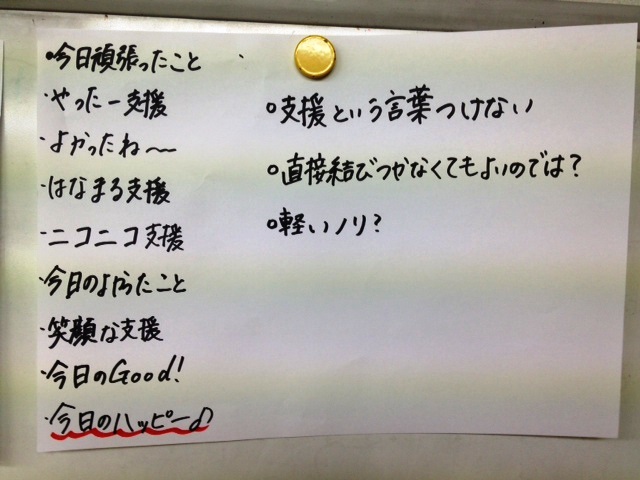 ・今日頑張ったこと
・やったー支援
・よかったね〜
・はなまる支援
・ニコニコ支援
・今日のよかったこと
・笑顔な支援
・今日のGood!
・今日のハッピー♪
○支援という言葉つけない
○直接結びつかなくてもよいのでは?
○軽いノリ?